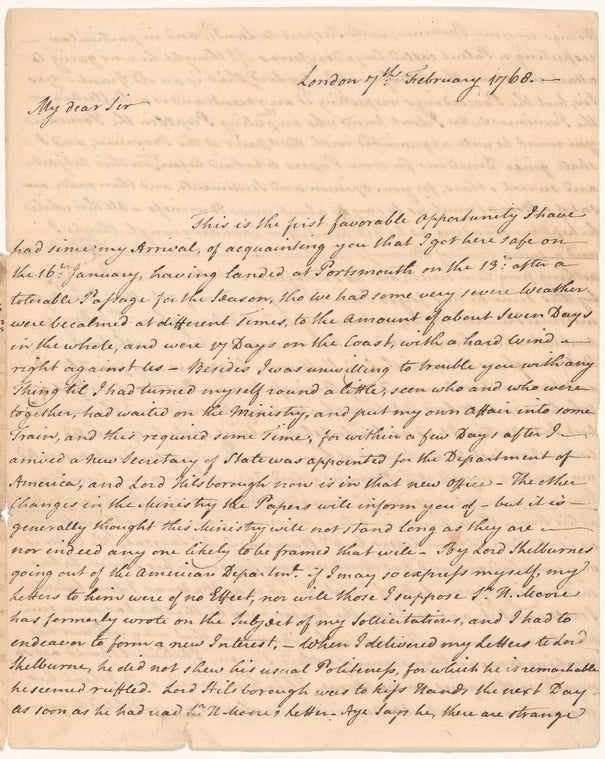 London 7th. February 1768. —
My dear Sir
This is the first favorable Opportunity I have
had since my Arrival, of acquainting you that I got here safe on
the 16th. January, having landed at Portsmouth on the 13th. after a
tolerable Passage for the Season, tho we had some very severe Weather
were becalmed at different Times, to the Amount of about Seven Days
in the whole, and were 17 Days on the Coast, with a hard Wind —
right against us — Besides I was unwilling to trouble you with any
Thing til I had turned myself round a little, seen who and who were
together, had waited on the Ministry, and put my own Affair into some
Train, and this required some Time, for within a few Days after I —
arrived a new Secretary of State was appointed for the Department of
America, and Lord Hilsborough now is in that new Office — The other
Changes in the Ministry the Papers will inform you of — but it is —
generally thought this Ministry will not stand long as they are —
nor indeed any one likely to be framed that will — By Lord Shelburnes
going out of the American Departmt. if I may so express myself, my
Letters to him were of no Effect, nor will those I suppose Sr. H. Moore
has formerly wrote on the Subject of my Sollicitations, and I had to
endeavor to form a new Interest, — When I delivered my Letters to Lord
Shelburne, he did not shew his usual Politeness, for which he is remarkable
he seemed ruffled — Lord Hilsborough was to kiss Hands the next Day —
as soon as he had read Sr. H Moore's Letter — Aye Says he, there are strange